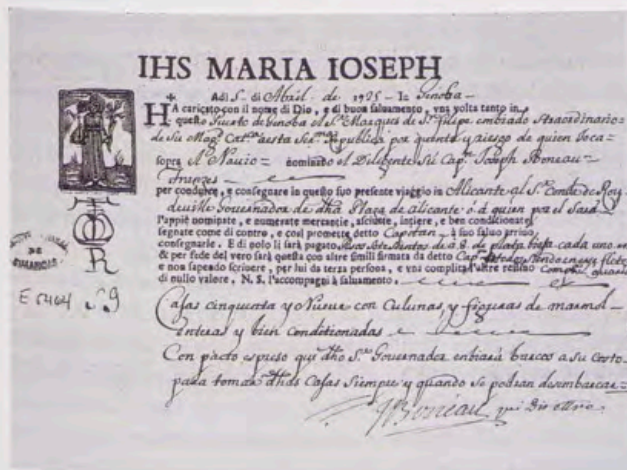 IHS MARIA IOSEPH
Adi 5 - di Abril - de 1725 - In Genoba -
HA caricato con il nome di Dio, e di buon saluamento, vna volta tanto in
questo Puerto de Genoba el Sr. Marques de Sn. Felipe embiado Straordinario
de Su Magd. Catca. aesta Serma. Republica por quenta y riesgo de quien toca
sopra il Nauio - nominado el Diligente Sil Capn. Joseph Boneau -
franzes -
per condurre, e consegnare in questo suo presente viaggio in Alicante al Sr. Conde de
Gouernador de dha Plaza de alicante ó á quien por el Será
l'appiè nominate, e numerate mercantie, asciutte, intiere, e ben conditionate
segnate come di contro, e così promette detto Capitan, à suo saluo arriuo
consegnarle. E di nolo li sarà pagato de á 8. de plata cada uno
& per fede del vero sarà questa con altre simili firmata da detto Cap.
e non sapendo scriuere, per lui da terza persona, e vna complita l'altre restino
di nullo valore, N. S. l'accompagni à saluamento,
Cajas cinquenta y Nueue con Culunas, y figuras de marmol -
enteras y bien conditionadas
Con pacto espreso que dho Sr. Gouernador enbiará barcos a su Costo
para tomar dhas Cajas Siempre y quando se podran desembarcar -
JBoneau
DE
SIMANCAS
E 5404 59